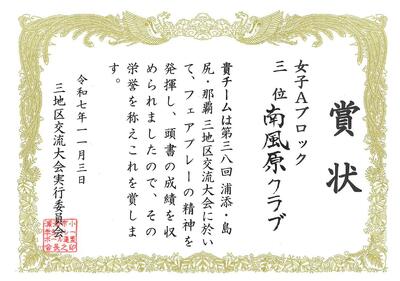 賞状
女子Aブロック
三位 南風原クラブ
貴チームは第三八回 浦添・島
尻・那覇 三地区交流大会に於い
て、フェアプレーの精神を
発揮し、頭書の成績を収
められましたので、その
栄誉を称えこれを賞しま
す。
令和七年一一月三日
三地区交流大会実行委員会